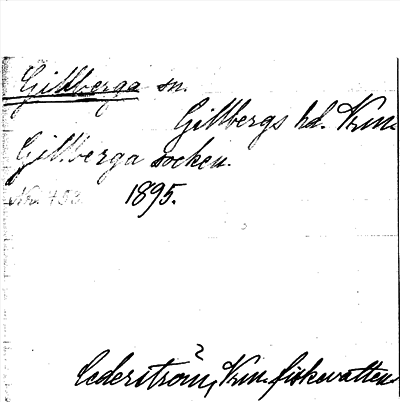 Gillberga sn.
Gillbergs hd. Vrm.
Gillberga socken.
1895.
Cederström, Vrm. fiskevatten